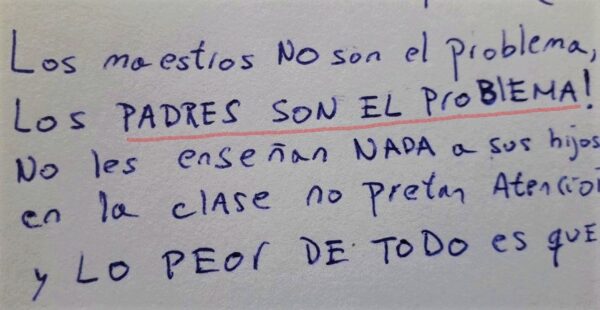 Los maestros NO son el problema,
Los PADRES SON EL ProBlEMA!
No les enseñan NADA a sus hijos
en la clAse no pretan Atención
y LO PEOr DE TODO es quE